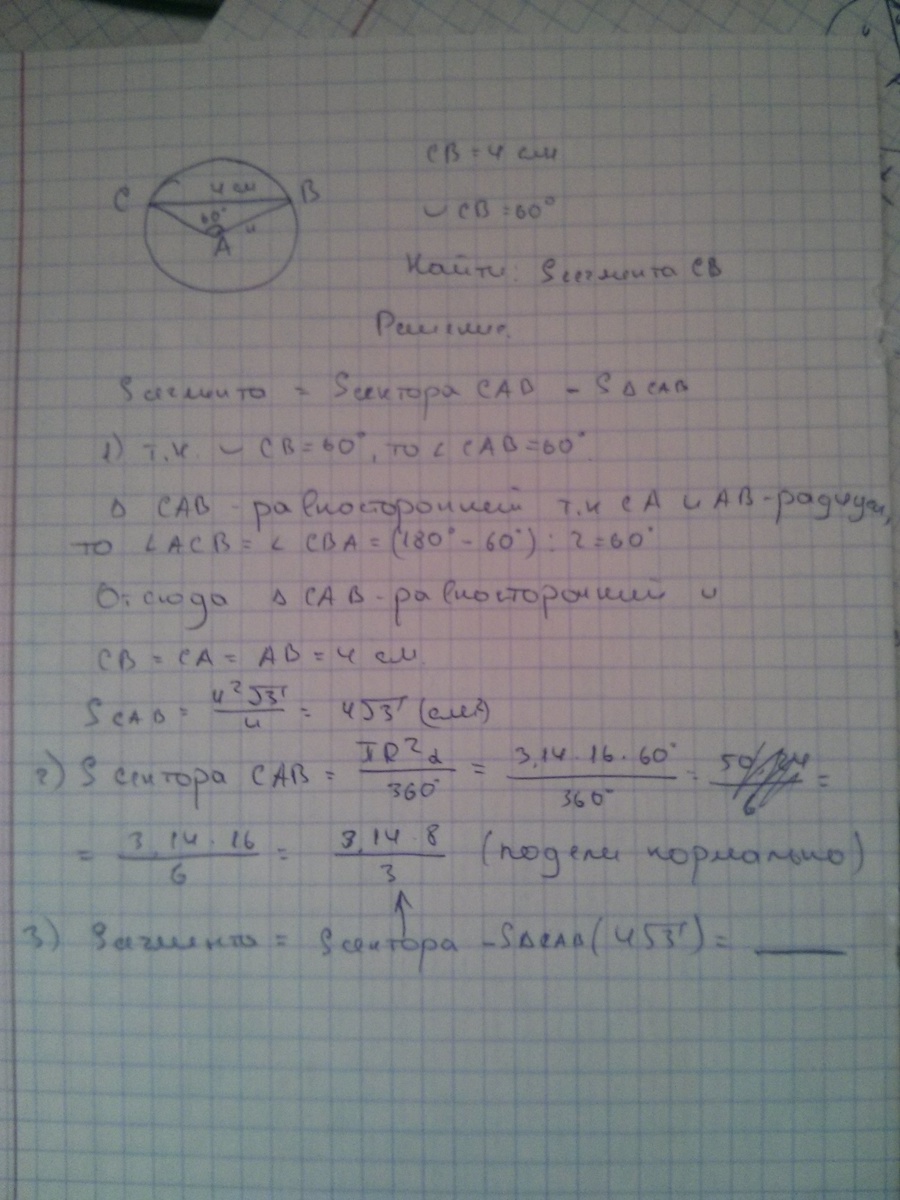 C 4 см B
60° 4
A
CB = 4 см
◡ CB = 60°
Найти: Sсегмента CB
Решение.
Sсегмента = Sсектора CAB - S△CAB
1) т.к. ◡ CB = 60°, то ∠ CAB = 60°.
△ CAB - равносторонний т.к CA и AB - радиусы,
то ∠ACB = ∠ CBA = (180° - 60°) : 2 = 60°
Отсюда △ CAB - равносторонний и
CB = CA = AB = 4 см.
S CAB = 4²√3/4 = 4√3 (см²)
2) S сектора CAB = πR²α/360° = 3,14 · 16 · 60°/360° = =
= 3,14 · 16/6 = 3,14 · 8/3 (подели нормально)
3) Sсегмента = Sсектора - S△CAB (4√3) = ____